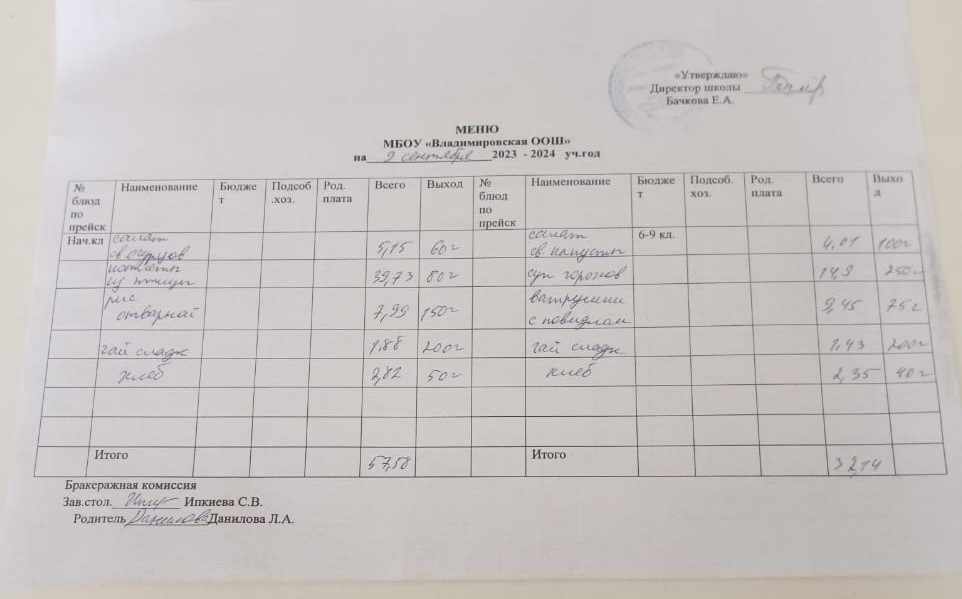 «Утверждаю»
Директор школы
Бачкова Е.А.
МЕНЮ
МБОУ «Владимировская ООШ»
на 9 сентября 2023 - 2024 уч.год
№ блюд по прейск Наименование Бюджет Подсоб.хоз. Род. плата Всего Выход № блюд по прейск Наименование Бюджет Подсоб. хоз. Род. плата Всего Выход
Нач.кл салат св огурцов 5,15 60г салат св. капусты 6-9 кл. 4,01 100г
котлеты из птицы 39,73 80г суп горохов 14,9 250г
рис отварной 7,99 150г ватрушки с повидлом 9,45 75г
чай сладк 1,88 200г чай сладк 1,43 200г
хлеб 2,82 50г хлеб 2,35 40г
Итого 57,58 Итого 32,14
Бракеражная комиссия
Зав.стол. Ипкиева С.В.
Родитель Данилова Данилова Л.А.